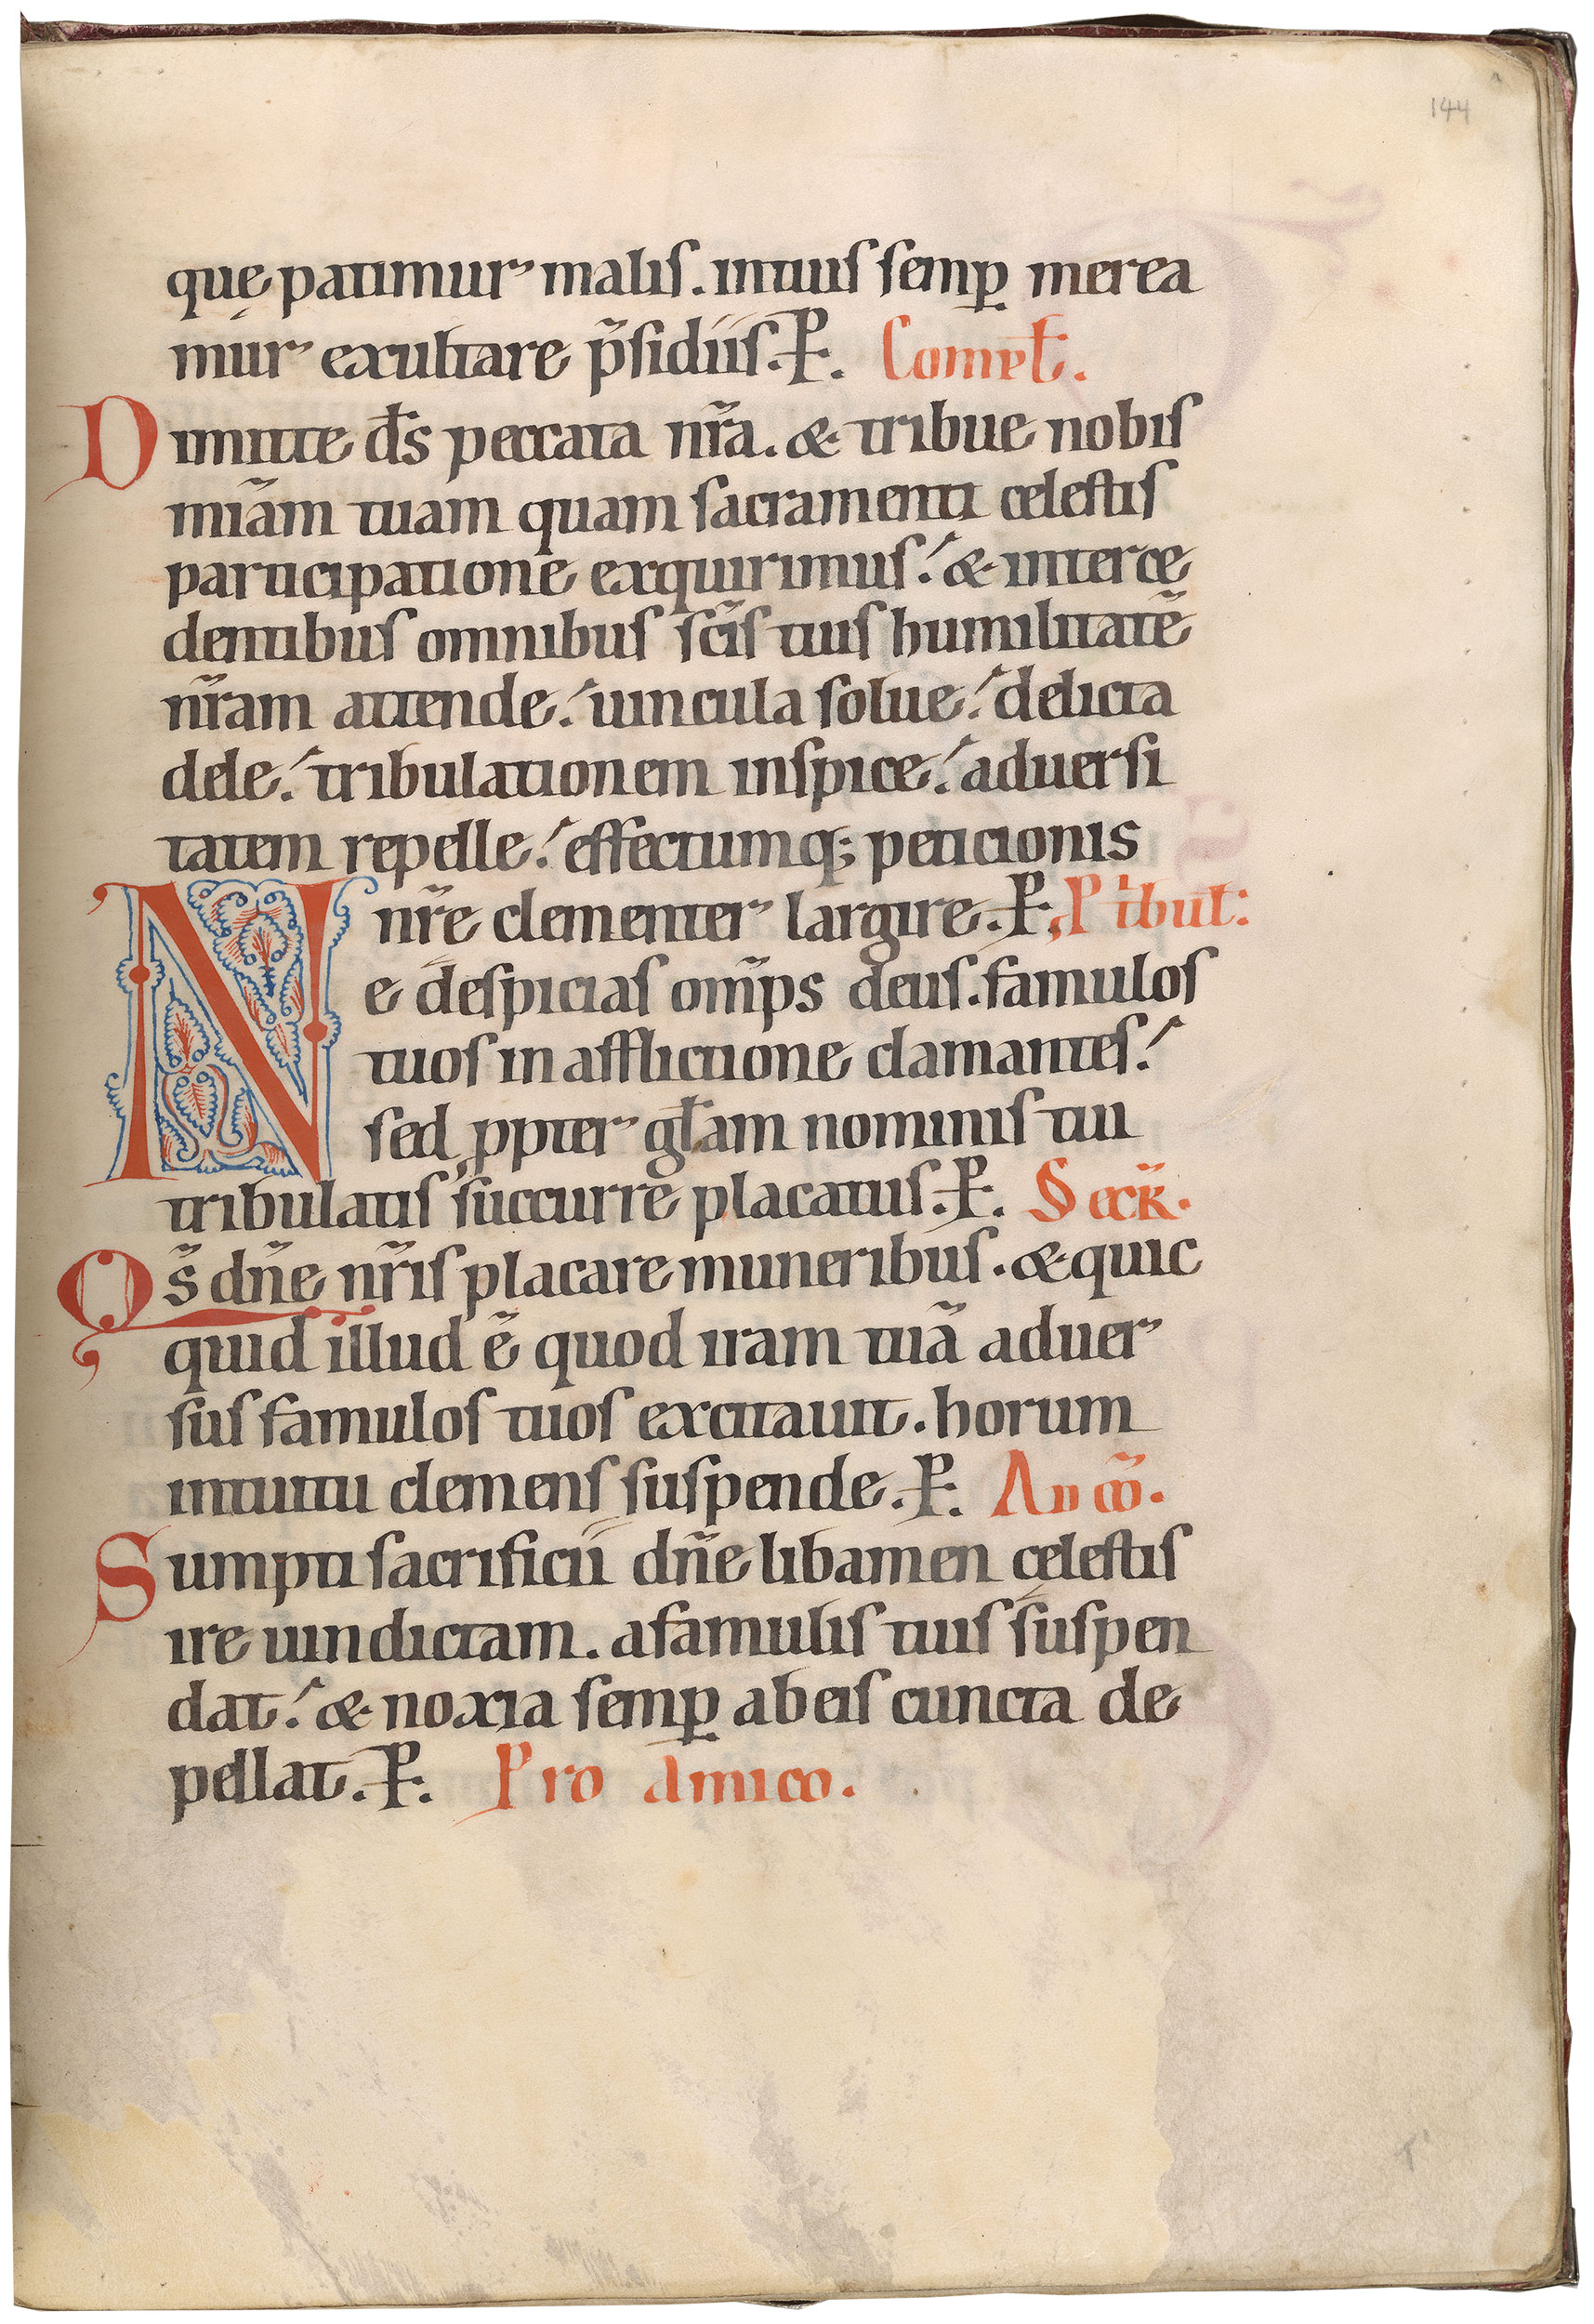 144
quę patimur malis. intuis semꝑ merea
mur exultare p̃sidiis. P. Complēt.
Dimitte ds̄ peccata nr̃a. & tribue nobis
miãm tuam quam sacramenti celestis
participatione exquirimus. & interce
dentibus omnibus sc̃is tuis humilitatẽ
nr̃am attende. uincula solue. delicta
dele. tribulationem inspice. aduersi
tatem repelle. effectumq; peticionis
nr̃e clementer largire. P. P t'bul:
Ne despicias om̃ps deus. famulos
tuos in afflictione clamantes.
sed ꝓpter gl̃am nominis tui
tribulatis succurre placatus. P. Secr̃.
Os̃ dñe nr̃is placare muneribus. & quic
quid illud ẽ quod iram tuã aduer
sus famulos tuos excitauit. horum
intuitu clemens suspende. P. Ad cõ.
Sumpti sacrificii dñe libamen celestis
ire uindictam. a famulis tuis suspen
dat. & noxia semꝑ ab eis cuncta de
pellat. P. Pro Amico.